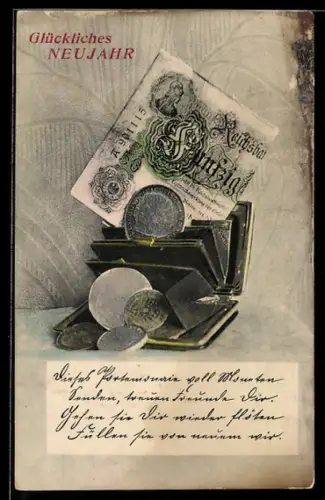 Glückliches
NEUJAHR
Reichsban
Fünfzig
Dieses Portemonaie voll Moneten
Senden, treuen Freunde Dir.
Gehen sie Dir wieder flöten
Füllen sie von neuem wir.